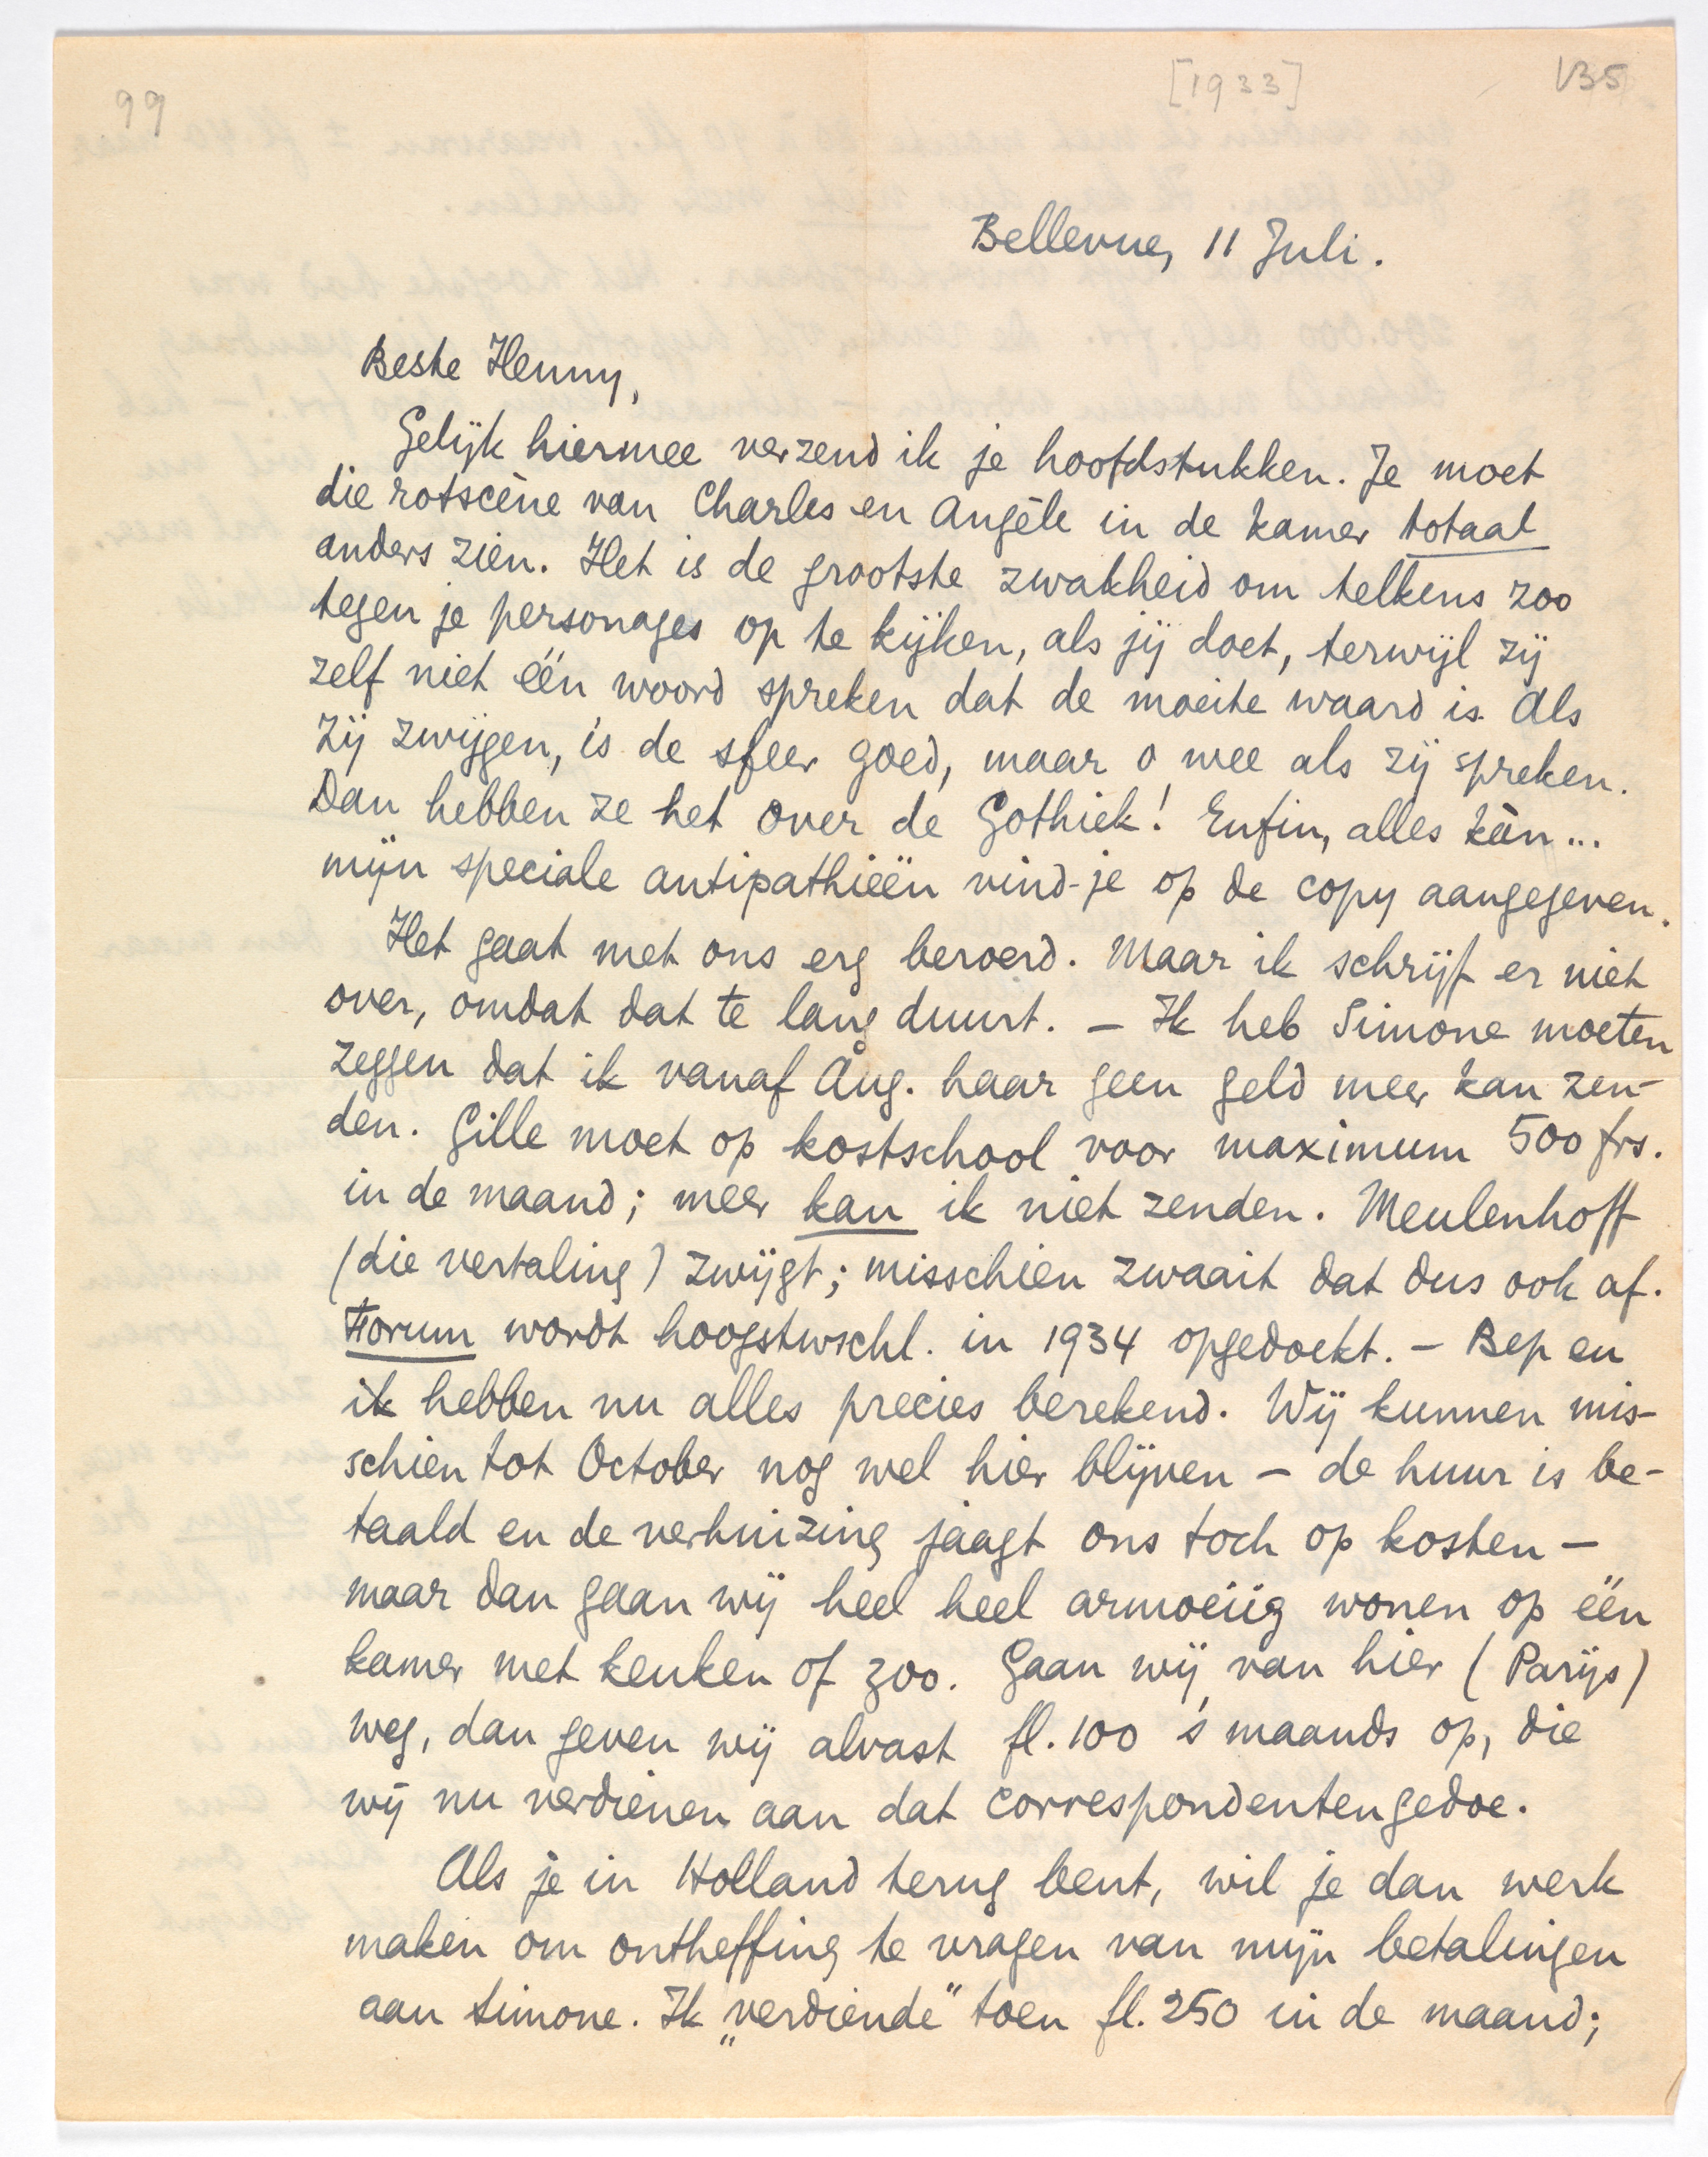 99
[1933]
VB5
Bellevue, 11 Juli.
Beste Henny,
Gelijk hiermee verzend ik je hoofdstukken. Je moet
die rotscène van Charles en Angèle in de kamer totaal
anders zien. Het is de grootste zwakheid om telkens zoo
tegen je personages op te kijken, als jij doet, terwijl zij
zelf niet één woord spreken dat de moeite waard is. Als
zij zwijgen, is de sfeer goed, maar o wee als zij spreken.
Dan hebben ze het over de Gothiek! Enfin, alles kàn...
mijn speciale antipathieën vind-je op de copy aangegeven.
Het gaat met ons erg beroerd. Maar ik schrijf er niet
over, omdat dat te lang duurt. – Ik heb Simone moeten
zeggen dat ik vanaf Aug. haar geen geld meer kan zen-
den. Gille moet op kostschool voor maximum 500 frs.
in de maand; meer kan ik niet zenden. Meulenhoff
(die vertaling) zwijgt; misschien zwaait dat dus ook af.
Forum wordt hoogstwschl. in 1934 opgedoekt. – Bep en
ik hebben nu alles precies berekend. Wij kunnen mis-
schien tot October nog wel hier blijven – de huur is be-
taald en de verhuizing jaagt ons toch op kosten –
maar dan gaan wij heel heel armoeiig wonen op één
kamer met keuken of zoo. Gaan wij van hier (Parijs)
weg, dan geven wij alvast fl. 100 's maands op, die
wij nu verdienen aan dat correspondentengedoe.
Als je in Holland terug bent, wil je dan werk
maken om ontheffing te vragen van mijn betalingen
aan Simone. Ik „verdiende" toen fl. 250 in de maand;